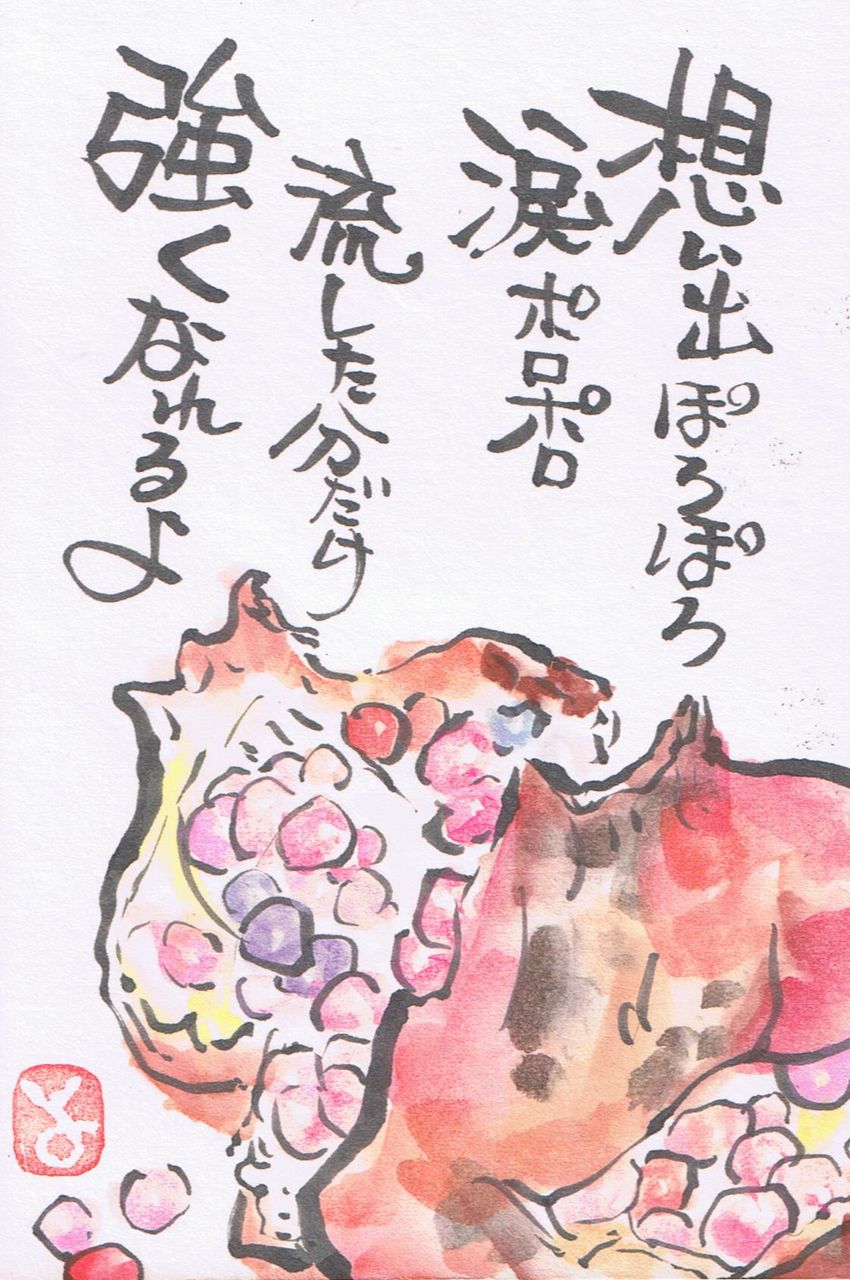 想い出ぽろぽろ
涙ポロポロ
流した分だけ
強くなれるよ